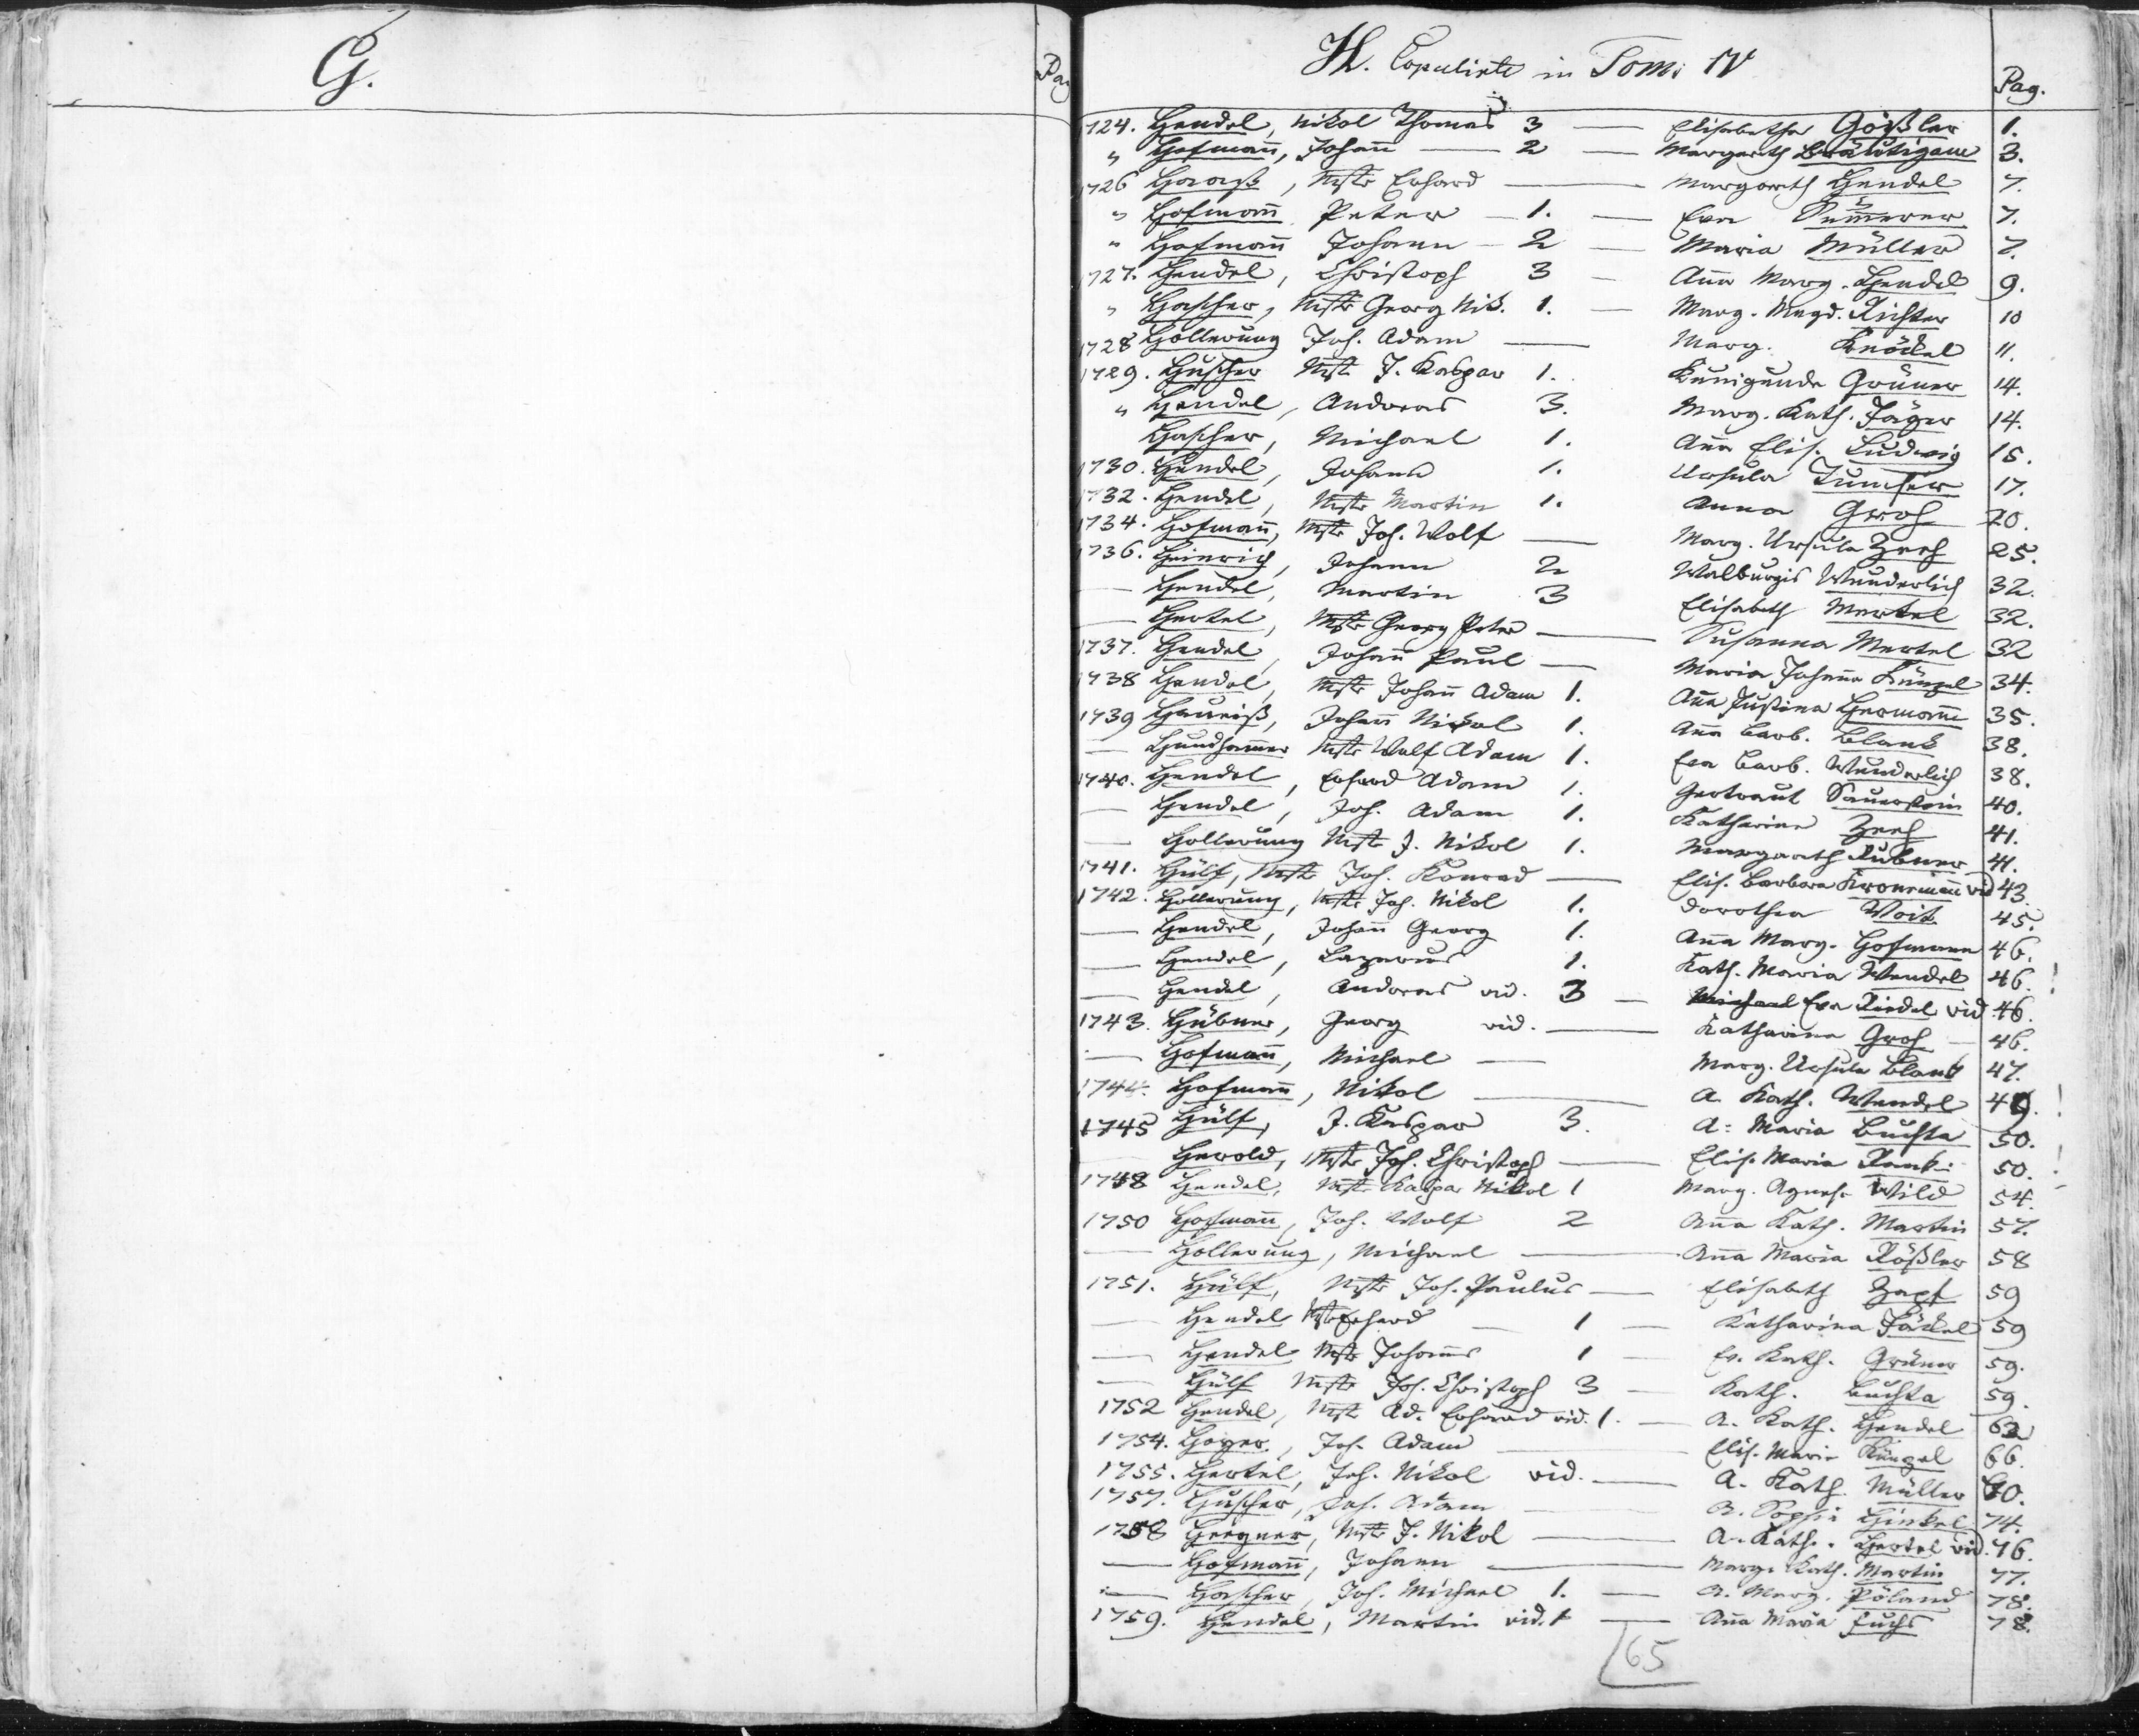 G.
Pag
H. Copulirte in Tom: IV
Pag.
1724. Hendel, Nikol Thomas 3 — Elisabetha Gößler 1.
" Hofmañ, Johañ — 2 — Margareth Bräutigam 3.
1726 Haaß, Mstr Erhard — Margareth Hendel 7.
" Hofmañ Peter — 1. — Eva Sum̃erer 7.
" Hofmañ Johann — 2 — Maria Müller 7.
1727. Hendel, Christoph 3 — Añа Marg. Hendel 9.
" Hascher, Mstr Georg Nik. 1. — Marg. Magd. Richter 10
1728 Hollerung Joh. Adam — Marg. Knöckel 11.
1729. Huscher Mstr J. Kaspar 1. Kunigunde Grüner 14.
" Hendel, Andreas 3. Marg. Kath. Jäger 14.
Hascher, Michael 1. Aña Elis. Ludwig 15.
1730. Hendel, Johann 1. Ursula 17.
1732. Hendel, Mstr Martin 1. Anna Groh 20.
1734. Hofmañ, Mstr Joh. Wolf — Marg. Ursula Zeeh 25.
1736. Heinrich, Johann 2 Walburgis Wunderlich 32.
— Hendel, Martin 3 Elisabeth Mertel 32.
— Hertel, Mstr Georg Peter — Susanna Mertel 32
1737. Hendel, Johañ Paul — Maria Johaña Künzel 34.
1738 Hendel, Mstr Johañ Adam 1. Aña Justina Hermañ 35.
1739 Harneiß, Johañ Nikol 1. Aña Barb. Blank 38.
— Hundham̃er Mstr Wolf Adam 1. Eva Barb. Wunderlich 38.
1740. Hendel, Erhard Adam 1. Gertraut Sauerstein 40.
— Hendel, Joh. Adam 1. Katharina Zeeh 41.
— Hollerung Mstr J. Nikol 1. Margareth Hübner 41.
1741. Hülf, Mstr Joh. Konrad — Elis. Barbara Kronemañ vid 43.
1742. Hollerung, Mstr Joh. Nikol 1. Dorothea Voit 45.
— Hendel, Johañ Georg 1. Aña Marg. Hofmann 46.
— Hendel, Lazarus 1. Kath. Maria Wendel 46. !
— Hendel, Andreas vid. 3 — Michael Eva Riedel vid 46.
1743. Hübner, Georg vid. — Katharina Groh — 46.
— Hofmañ, Michael — Marg. Ursula Blank 47.
1744. Hofmañ, Nikol — A. Kath. Wendel 49. !
1745 Hülf, J. Kaspar 3. A: Maria Buchta 50.
Herold, Mstr Joh. Christoph — Elis. Maria Rank 50. !
1748 Hendel, Mstr Kaspar Nikol 1 Marg. Agnes Wild 54.
1750 Hofmañ, Joh. Wolf 2 Aña Kath. Martin 57.
— Hollerung, Michael — Aña Maria Rößler 58
1751. Hülf, Mstr Joh. Paulus — Elisabeth Zapf 59
— Hendel Mstr Erhard — 1 — Katharina Jäckel 59
— Hendel Mstr Johañes 1 — Ev. Kath. Grüner 59.
— Hülf Mstr Joh. Christoph 3 — Kath. Buchta 59.
1752 Hendel, Mstr Ad. Erhard vid. 1. — A. Kath. Hendel 62
1754. Hoyer, Joh. Adam — Elis. Maria Künzel 66.
1755. Hertel, Joh. Nikol vid. — A. Kath. Müller 70.
1757. Huscher, Joh. Adam — A. Sophia Hinkel 74.
1758 Hergner, Mstr J. Nikol — A. Kath. Hertel vid. 76.
— Hofmañ, Johann — Marg. Kath. Martin 77.
— Hascher, Joh. Michael 1. — A. Marg. Pöland 78.
1759. Hendel, Martin vid. 1 — Aña Maria Fuchs 78.
65